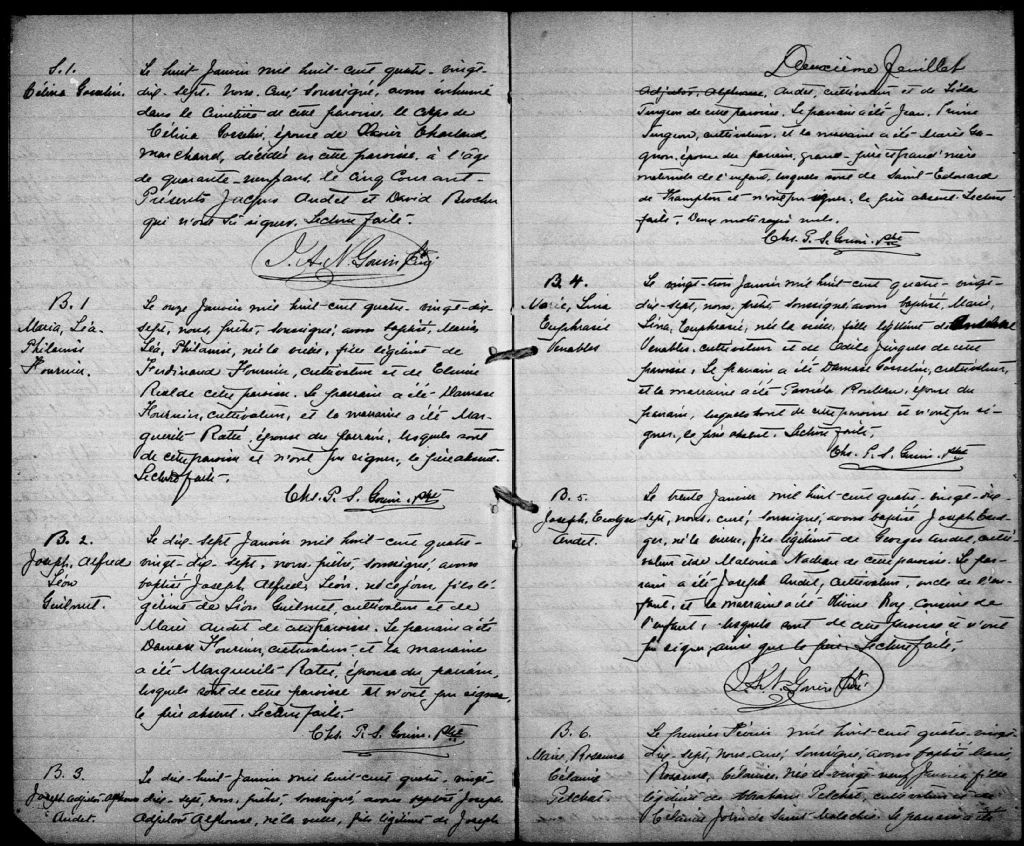 S. 1.
Célina Gosselin.
Le huit Janvier mil huit-cent quatre-vingt-
dix-sept. Nous, curé soussigné, avons inhumé
dans le cimetière de cette paroisse, le corps de
Célina Gosselin, épouse de Charland,
marchand, décédée en cette paroisse, à l'âge
de quarante-neuf ans, le cinq courant.
Présents Jacques Audet et David
qui n'ont su signer. Lecture faite.
J. A. N. Gouin Ptre Curé
B. 1
Maria, Léa-
Philamise
Fournier.
Le onze Janvier mil huit-cent quatre-vingt-dix-
sept, nous, prêtre, soussigné, avons baptisé, Maria,
Léa, Philamise, née la veille, fille légitime de
Ferdinand Fournier, cultivateur et de
de cette paroisse. Le parrain a été Damase
Fournier, cultivateur, et la marraine a été Mar-
guerite Ratée, épouse du parrain, lesquels sont
de cette paroisse et n'ont pu signer, le père absent.
Lecture faite.
Chs. P. S. Gouin. Ptre
B. 2.
Joseph, Alfred
Léon
Guilmet.
Le dix-sept Janvier mil huit-cent quatre-
vingt-dix-sept, nous, prêtre, soussigné, avons
baptisé Joseph, Alfred, Léon, né ce jour, fils lé-
gitime de Léon Guilmet, cultivateur et de
Marie Audet de cette paroisse. Le parrain a été
Damase Fournier, cultivateur, et la marraine
a été Marguerite Ratée, épouse du parrain,
lesquels sont de cette paroisse et n'ont pu signer,
le père absent. Lecture faite.
Chs. P. S. Gouin. Ptre
B. 3
Joseph Adjutor Alphonse
Audet.
Le dix-huit Janvier mil huit-cent quatre-vingt
dix-sept, nous, prêtre, soussigné, avons baptisé Joseph
Adjutor Alphonse, né la veille, fils légitime de Joseph
Deuxième feuillet
Adjutor, Alphonse, Audet, cultivateur et de Léda
Turgeon de cette paroisse. Le parrain a été Jean, Pierre
Turgeon, cultivateur, et la marraine a été Marie Ga-
gnon, épouse du parrain, grand-père et grand'mère
maternels de l'enfant, lesquels sont de Saint-Edouard
de Frampton et n'ont pu signer, le père absent. Lecture
faite. Deux mots rayés nuls.
Chs. P. S. Gouin. Ptre
B. 4.
Marie, Lina
Euphrasie
Venables
Le vingt-trois Janvier mil huit-cent quatre-vingt
dix-sept, nous, prêtre soussigné avons baptisé, Marie,
Lina, Euphrasie, née la veille, fille légitime de
Venables, cultivateur et de Odile Jacques de cette
paroisse. Le parrain a été Damase Gosselin, cultivateur,
et la marraine a été Pamela Rouleau, épouse du
parrain, lesquels sont de cette paroisse et n'ont pu si-
gner, le père absent. Lecture faite.
Chs. P. S. Gouin. Ptre
B. 5.
Joseph,
Audet.
Le trente Janvier mil huit-cent quatre-vingt-dix-
sept, nous, curé, soussigné, avons baptisé Joseph
né la veille, fils légitime de Georges Audet, culti-
vateur et de Malvina Nadeau de cette paroisse. Le par-
rain a été Joseph Audet, cultivateur, oncle de l'en-
fant, et la marraine a été Roy, cousine de
l'enfant, lesquels sont de cette paroisse et n'ont
pu signer, ainsi que le père. Lecture faite.
J. A. N. Gouin Ptre Curé
B. 6.
Marie, Rosanna
Célanire
Pelchat.
Le premier Février mil huit-cent quatre-vingt
dix-sept, nous, curé, soussigné, avons baptisé Marie,
Rosanna, Célanire, née le vingt neuf Janvier, fille
légitime de Abraham Pelchat, cultivateur et de
Célanire de Saint-Malachie. Le parrain a été